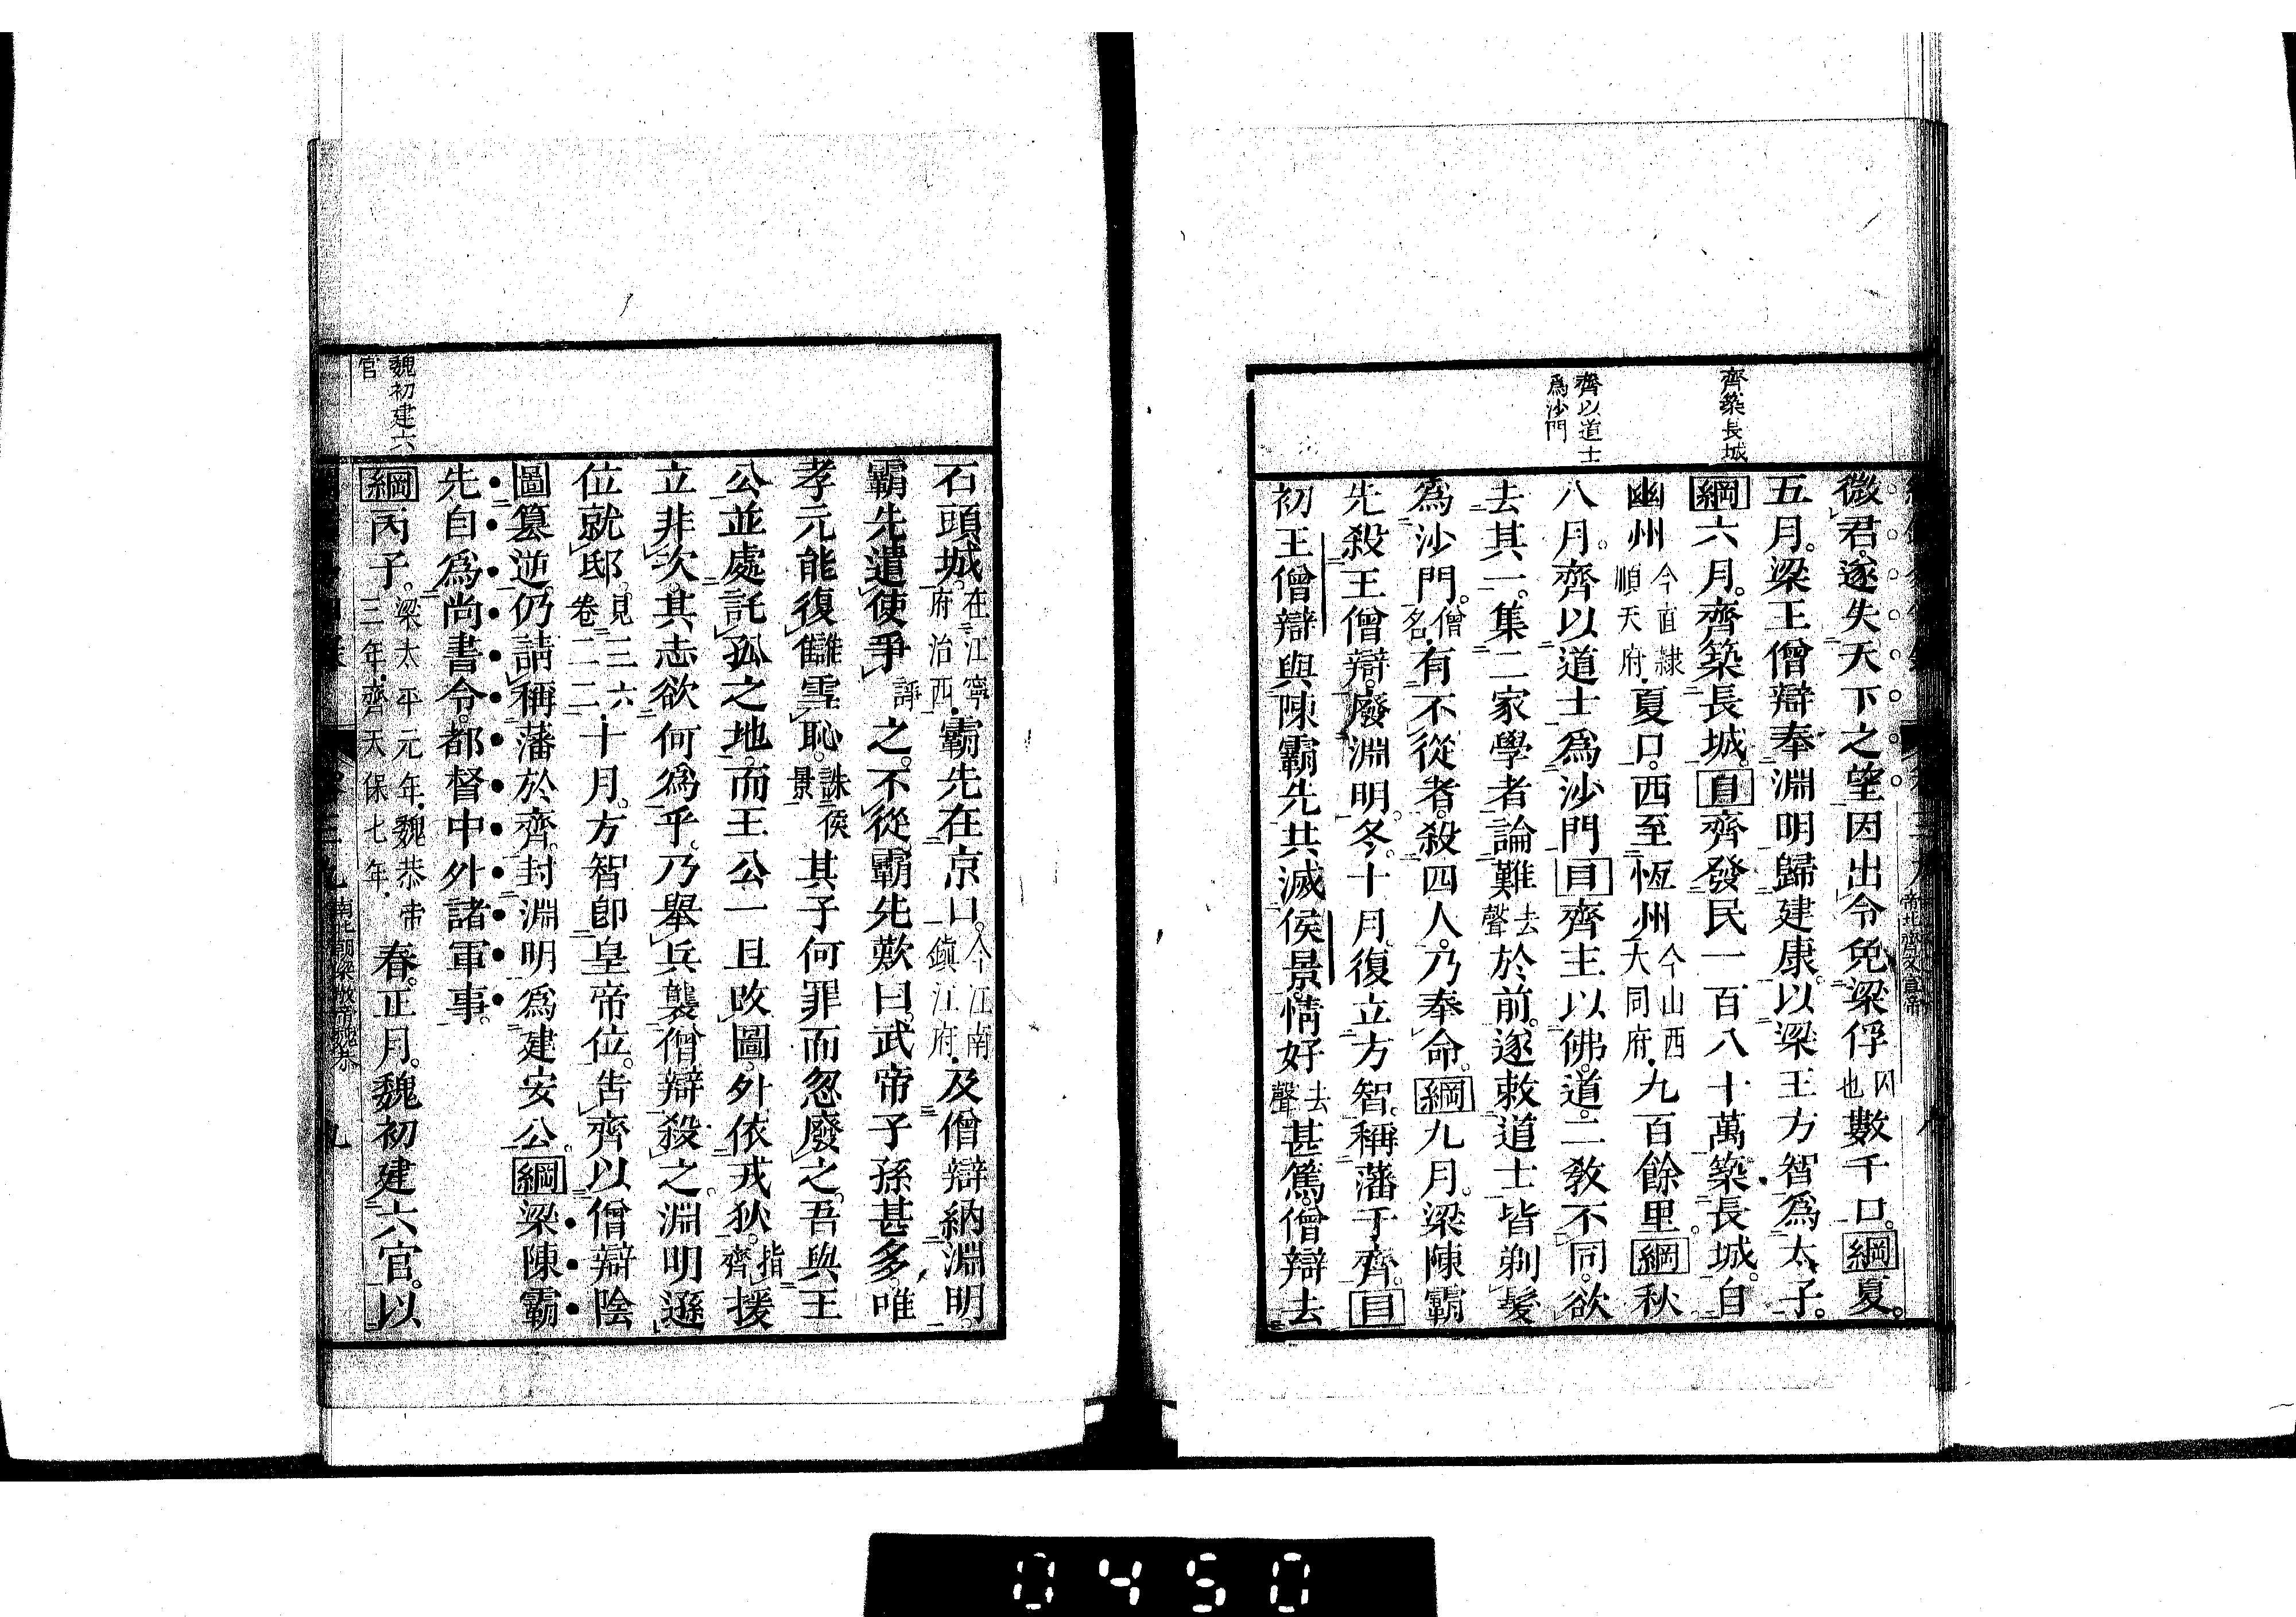 齊築長城
齊以道士
爲沙門
微君遂失天下之望因出令免梁俘囚也數千口。綱夏。
五月。梁王僧辯奉淵明歸建康。以梁王方智爲太子。
綱六月。齊築長城。目齊發民一百八十萬築長城。自
幽州今直隸順天府夏口。西至恆州今山西大同府九百餘里。綱秋
八月。齊以道士爲沙門目齊主以佛道二敎不同。欲
去其一。集二家學者論難去聲於前。遂敕道士皆剃髮
爲沙門。僧名有不從者。殺四人。乃奉命。綱九月。梁陳霸
先殺王僧辯。廢淵明。冬。十月。復立方智。稱藩于齊。目
初王僧辯與陳霸先共滅侯景。情好去聲甚篤。僧辯去
石頭城。在江寧府治西霸先在京口。今江南鎭江府及僧辯納淵明。
霸先遣使爭諍之。不從。霸先歎曰。武帝子孫甚多。唯
孝元能復讎雪恥。誅侯景其子何罪而忽廢之。吾與王
公並處託孤之地。而王公一旦改圖。外依戎狄。指齊援
立非次。其志欲何爲乎。乃舉兵襲僧辯殺之。淵明遜
位就邸。見三六卷二二十月。方智卽皇帝位。告齊以僧辯陰
圖簒逆。仍請稱藩於齊。封淵明爲建安公。綱梁陳霸
先自爲尚書令。都督中外諸軍事。
綱丙子。梁太平元年。魏恭帝三年。齊天保七年。春。正月。魏初建六官。以
魏初建六
官
0450